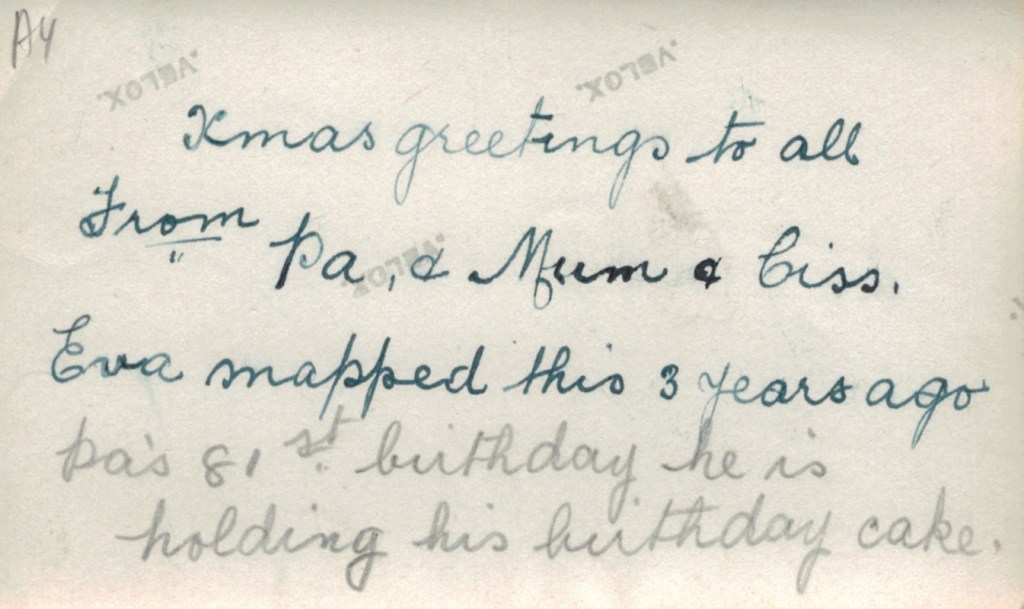 A4
VELOX.
VELOX.
Xmas greetings to all
From
"
Pa, & Mum & Ciss.
VELOX.
Eva snapped this 3 years ago
Pa's 81st birthday he is
holding his birthday cake.